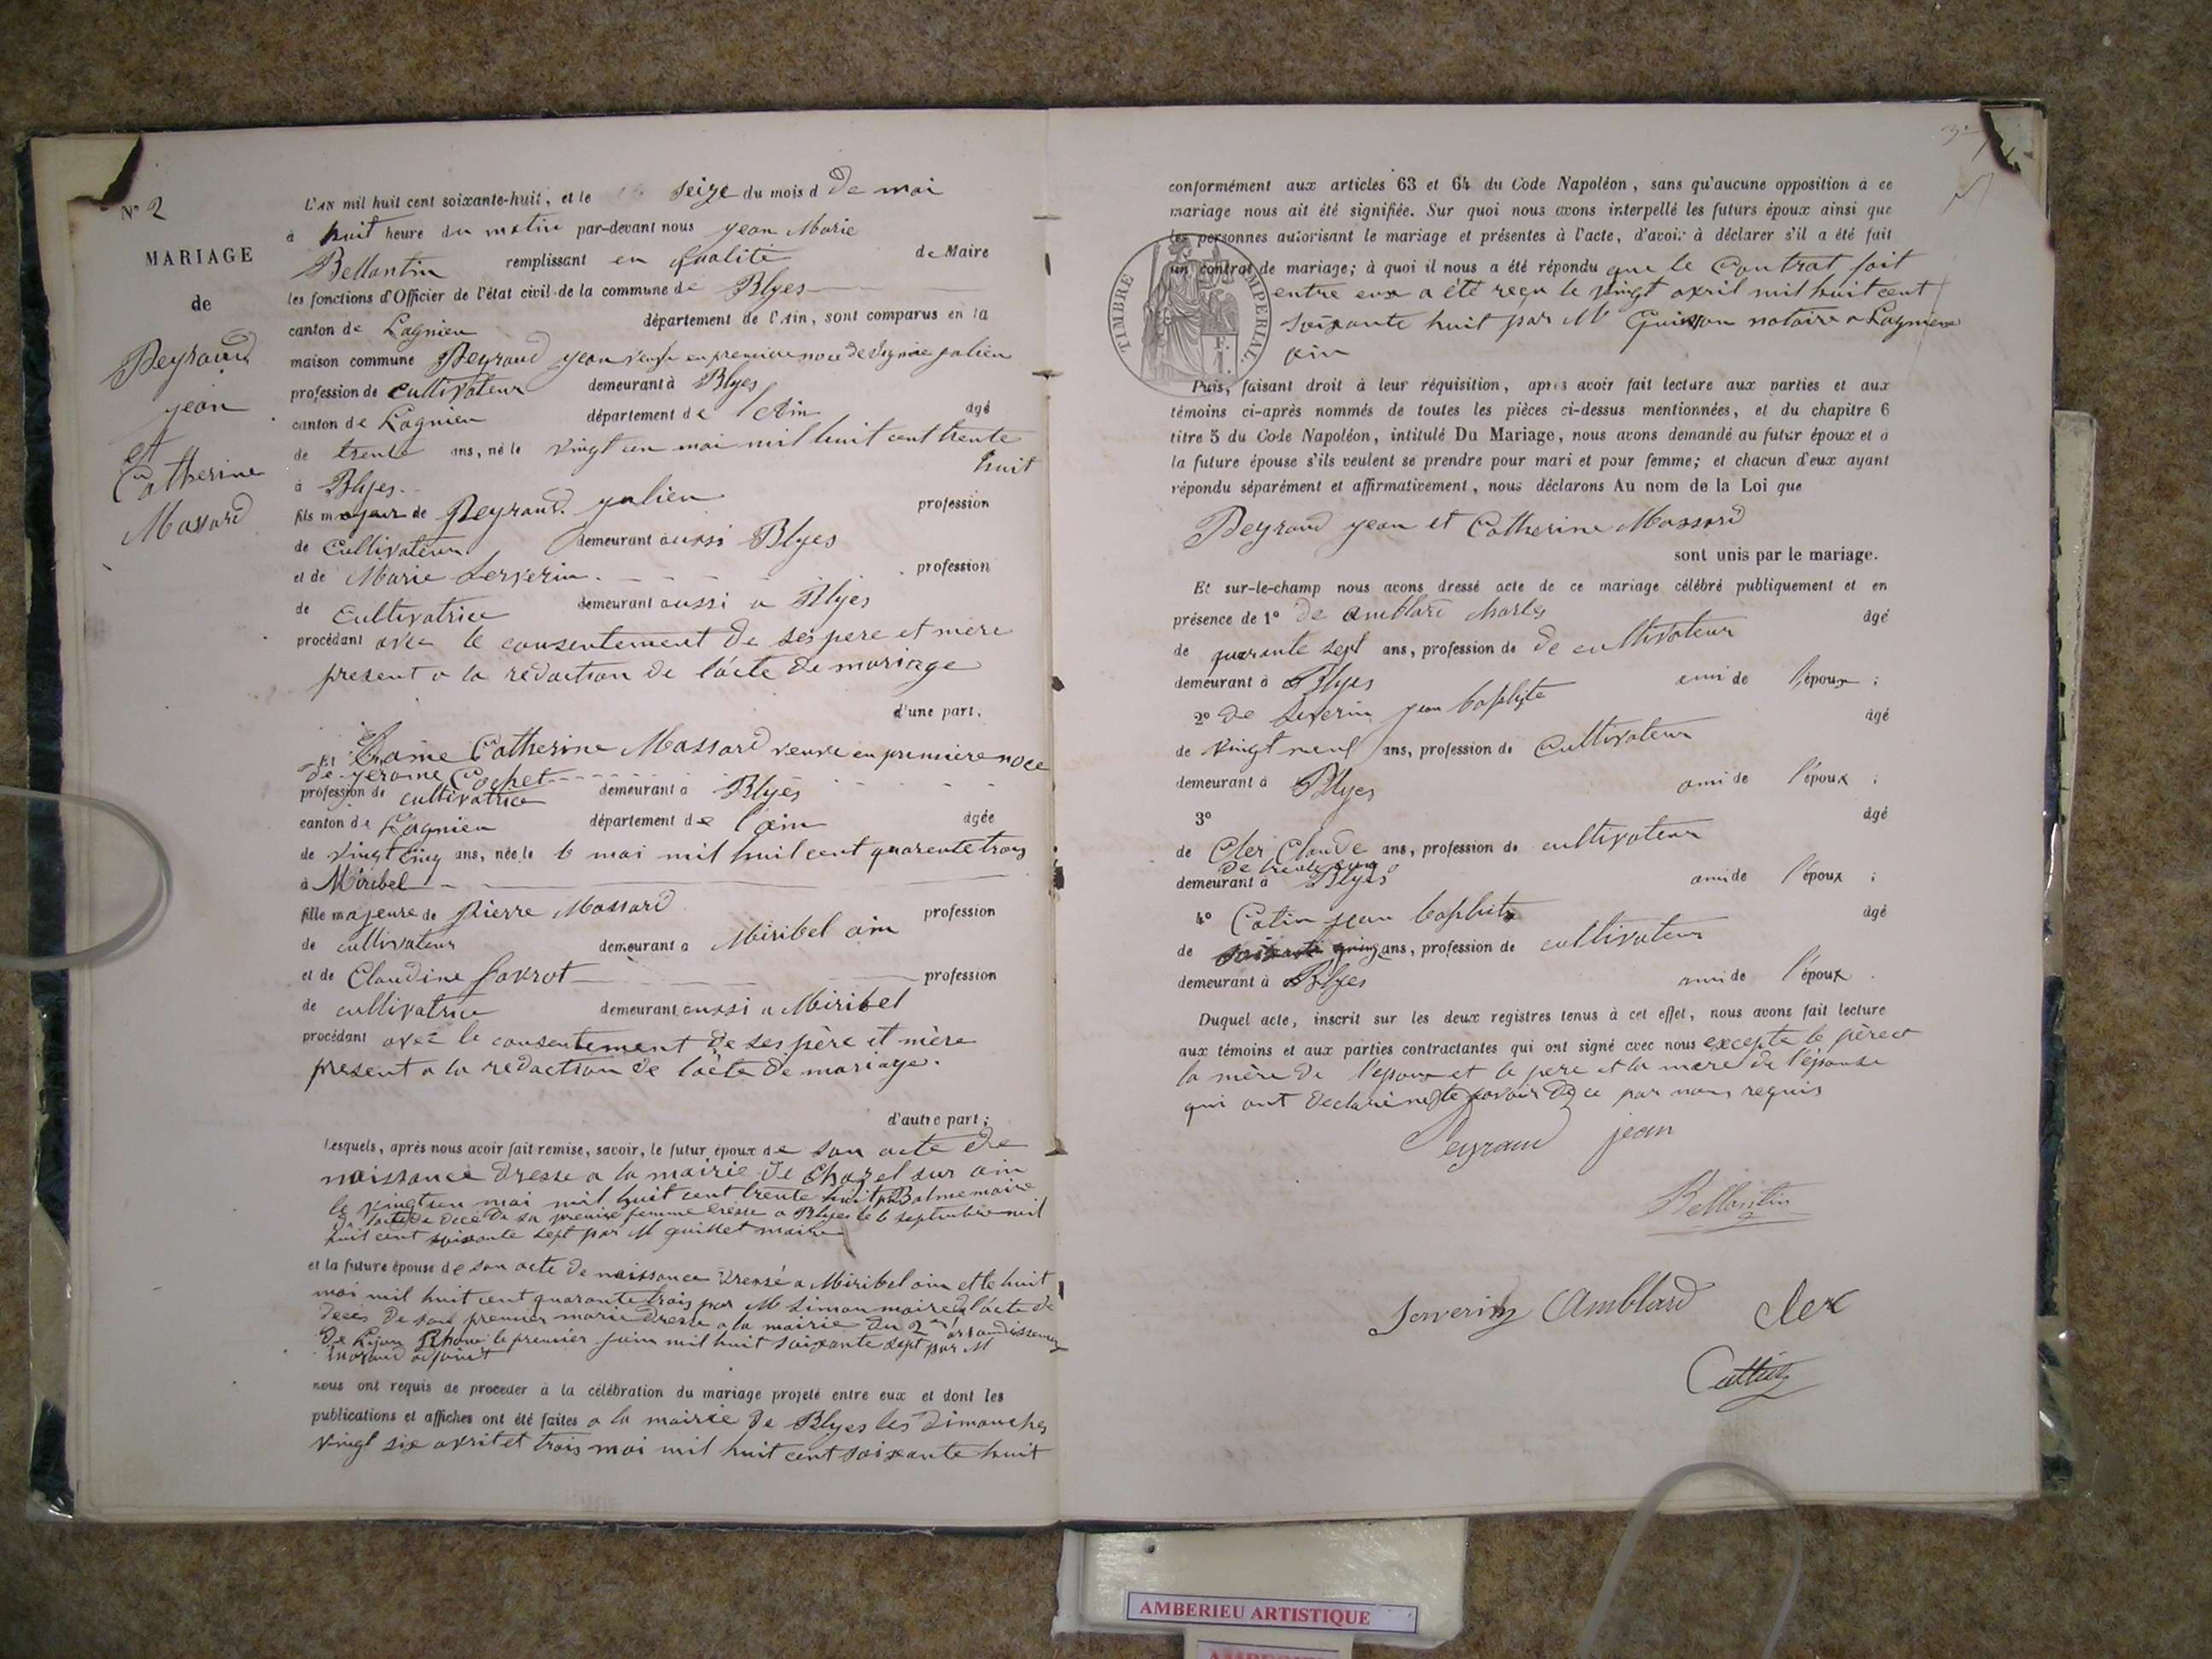 N° 2
MARIAGE
de
Peyraud
jean
et
Catherine
Massard
L'AN mil huit cent soixante-huit, et le seize du mois d de mai
à huit heure du matin par-devant nous jean Marie
Bellantin remplissant en qualité de Maire
les fonctions d'Officier de l'état civil de la commune de Blyes
canton de Lagnieu département de l'Ain, sont comparus en la
maison commune Peyraud jean veuf en premiere noce de julien
profession de cultivateur demeurant à Blyes
canton de Lagnieu département de l'Ain âgé
de trente ans, né le vingt un mai mil huit cent trente
huit
à Blyes
fils majeur de Peyraud julien profession
de cultivateur demeurant aussi Blyes
et de Marie Serverin profession
de cultivatrice demeurant aussi a Blyes
procédant avec le consentement de ses pere et mere
present a la rédaction de l'acte de mariage
d'une part.
Et Catherine Massard veuve en premiere noce
de jerome Cochet
profession de cultivatrice demeurant à Blyes
canton de Lagnieu département de l'ain âgée
de vingt cinq ans, née le 6 mai mil huit cent quarente trois
à Miribel
fille majeure de Pierre Massard profession
de cultivateur demeurant a Miribel ain
et de Claudine favrot profession
de cultivatrice demeurant aussi a Miribel
procédant avec le consentement de ses père et mère
present a la redaction de l'acte de mariage.
d'autre part;
Lesquels, après nous avoir fait remise, savoir, le futur époux de son acte de
naissance dresse a la mairie de Chazel sur ain
le vingt un mai mil huit cent trente huit par Balme maire
de l'acte de decé de sa premiere femme dresse a Blyes le 6 septembre mil
huit cent soixante sept par M guillet maire
et la future épouse de son acte de naissance dressé a Miribel ain et le huit
mai mil huit cent quarante trois par M Simon maire de l'acte de
deces de son premier marie dresse a la mairie du 2me arrondissement
de Lyon Rhone le premier juin mil huit soixante sept par M
adjoint
nous ont requis de proceder à la célébration du mariage projeté entre eux et dont les
publications et affiches ont été faites a la mairie de Blyes les dimanches
vingt six avril et trois mai mil huit cent soixante huit
conformément aux articles 63 et 64 du Code Napoléon, sans qu'aucune opposition à ce
mariage nous ait été signifiée. Sur quoi nous avons interpellé les futurs époux ainsi que
les personnes autorisant le mariage et présentes à l'acte, d'avoir à déclarer s'il a été fait
un contrat de mariage; à quoi il nous a été répondu que le Contrat fait
entre eux a été reçu le vingt avril mil huit cent
soixante huit par Me notaire a Lagnieu
ain
TIMBRE IMPERIAL.
F.
Puis, faisant droit à leur réquisition, après avoir fait lecture aux parties et aux
témoins ci-après nommés de toutes les pièces ci-dessus mentionnées, et du chapitre 6
titre 5 du Code Napoléon, intitulé Du Mariage, nous avons demandé au futur époux et à
la future épouse s'ils veulent se prendre pour mari et pour femme; et chacun d'eux ayant
répondu séparément et affirmativement, nous déclarons Au nom de la Loi que
Peyraud jean et Catherine Massard
sont unis par le mariage.
Et sur-le-champ nous avons dressé acte de ce mariage célébré publiquement et en
présence de 1° de amblard charles âgé
de quarante sept ans, profession de de cultivateur
demeurant à Blyes ami de l'époux ;
2° de Severin jean baptiste âgé
de vingt neuf ans, profession de cultivateur
demeurant à Blyes ami de l'époux ;
3° âgé
de Cler Claude ans, profession de cultivateur
de trente cinq
demeurant à Blyes ami de l'époux ;
4° Catin jean baptiste âgé
de ans, profession de cultivateur
demeurant à Blyes ami de l'époux .
Duquel acte, inscrit sur les deux registres tenus à cet effet, nous avons fait lecture
aux témoins et aux parties contractantes qui ont signé avec nous excepte le père et
la mère de l'epoux et le pere et la mere de l'épouse
qui ont declaré ne le savoir de ce par nous requis
Peyraud jean
Bellantin
Serverin Amblard Cler
AMBERIEU ARTISTIQUE